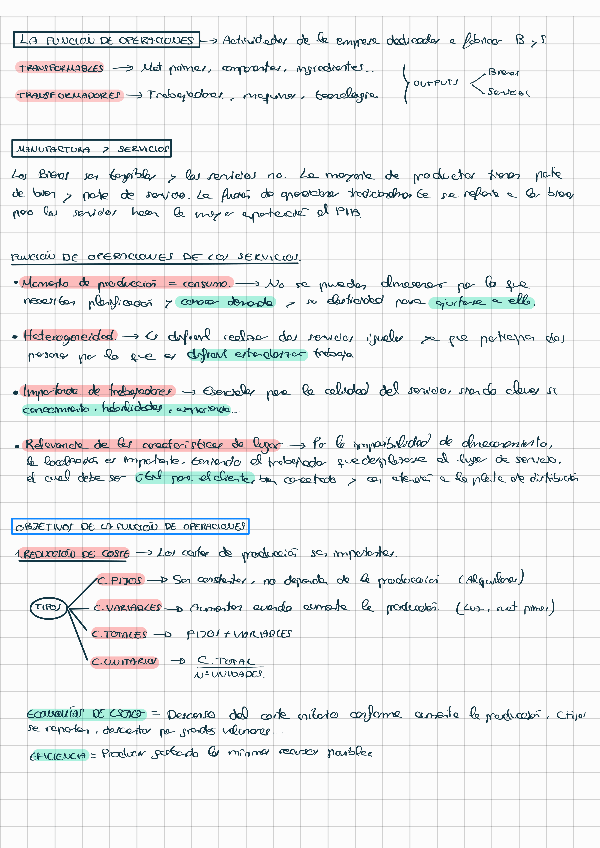 LA FUNCIÓN DE OPERACIONES → Actividades de la empresa dedicadas a fabricar B y S
TRANSFORMABLES → Mat primas, componentes, ingredientes..
TRANSFORMADORES → Trabajadores, maquinas, tecnología.
OUTPUTS
Bienes
Servicios
MANUFACTURA Y SERVICIOS
Los Bienes son tangibles y los servicios no. La mayoría de productos tienen parte
de bien y parte de servicio. La función de operaciones tradicionalmente se refiere a los bienes
pero los servicios hacen la mayor aportación al PIB.
FUNCIÓN DE OPERACIONES DE LOS SERVICIOS.
• Momento de producción = consumo. → No se pueden almacenar por lo que
necesitan planificación y conocer demanda y su elasticidad para ajustarse a ella.
• Heterogeneidad → Es difícil realizar dos servicios iguales ya que participan dos
personas por lo que es difícil estandarizar trabajo.
• Importancia de trabajadores → Esenciales para la calidad del servicio, siendo claves su
conocimiento, habilidades, experiencia..
• Relevancia de las características de lugar → Por la imposibilidad de almacenamiento,
la localización es importante. teniendo el trabajador que desplazarse al lugar de servicio,
el cual debe ser útil para el cliente, bien conectado y con atención a la planta de distribución
OBJETIVOS DE LA FUNCIÓN DE OPERACIONES
1. REDUCCIÓN DE COSTE → Los costes de producción son importantes.
TIPOS
C. FIJOS → Son constantes, no dependen de la producción (Alquileres)
C. VARIABLES → Aumentan cuando aumenta la producción. (Luz, mat primas)
C. TOTALES → FIJOS + VARIABLES
C. UNITARIOS → C. TOTAL
Nº UNIDADES.
ECONOMÍAS DE ESCALA = Descenso del coste unitario conforme aumenta la producción, C fijos
se reparten, descuentos por grandes volúmenes..
EFICIENCIA = Producir gastando los mínimos recursos posibles